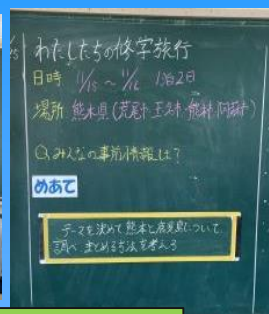 わたしたちの修学旅行
日時 11/15 ~ 11/16 1泊2日
場所 熊本県(荒尾市・玉名市・熊本・阿蘇市)
Q,みんなの事前情報は?
めあて
テーマを決めて熊本と鹿児島について、
調べ まとめる方法を考えよう